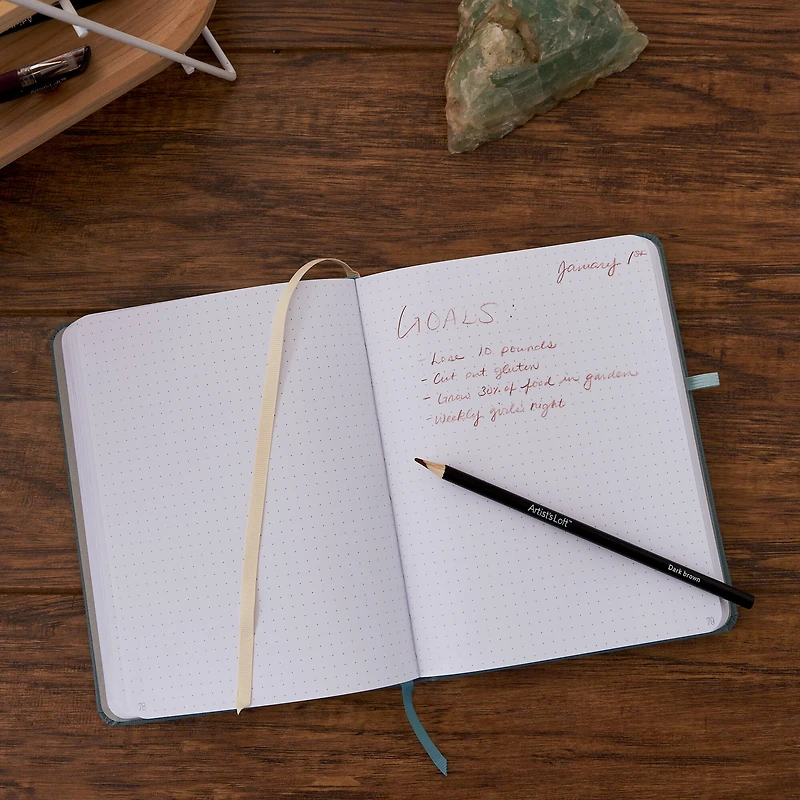 January 1st
GOALS:
- Lose 10 pounds
- Cut out gluten
- Grow 30% of food in garden
- Weekly girls night
Artist's Loft™
Dark brown
78
79